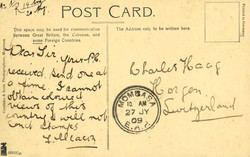 POST CARD.
This space may be used for communication
between Great Britain, the Colonies, and
some Foreign Countries.
The Address only to be written here.
Dear Sir, Your P.C.
received. Send one
at a time. I cannot
obtain coloured
views of this
country & will not
omit stamps
Charles Haag
Horgen
Switzerland
MOMBASA
10 AM
27 JY
09